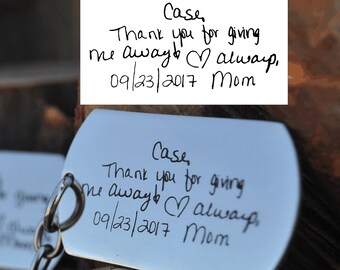 Case,
Thank you for giving
me away! ♡ always,
09/23/2017 Mom
Case,
Thank you for giving
me away! ♡ always,
09/23/2017 Mom